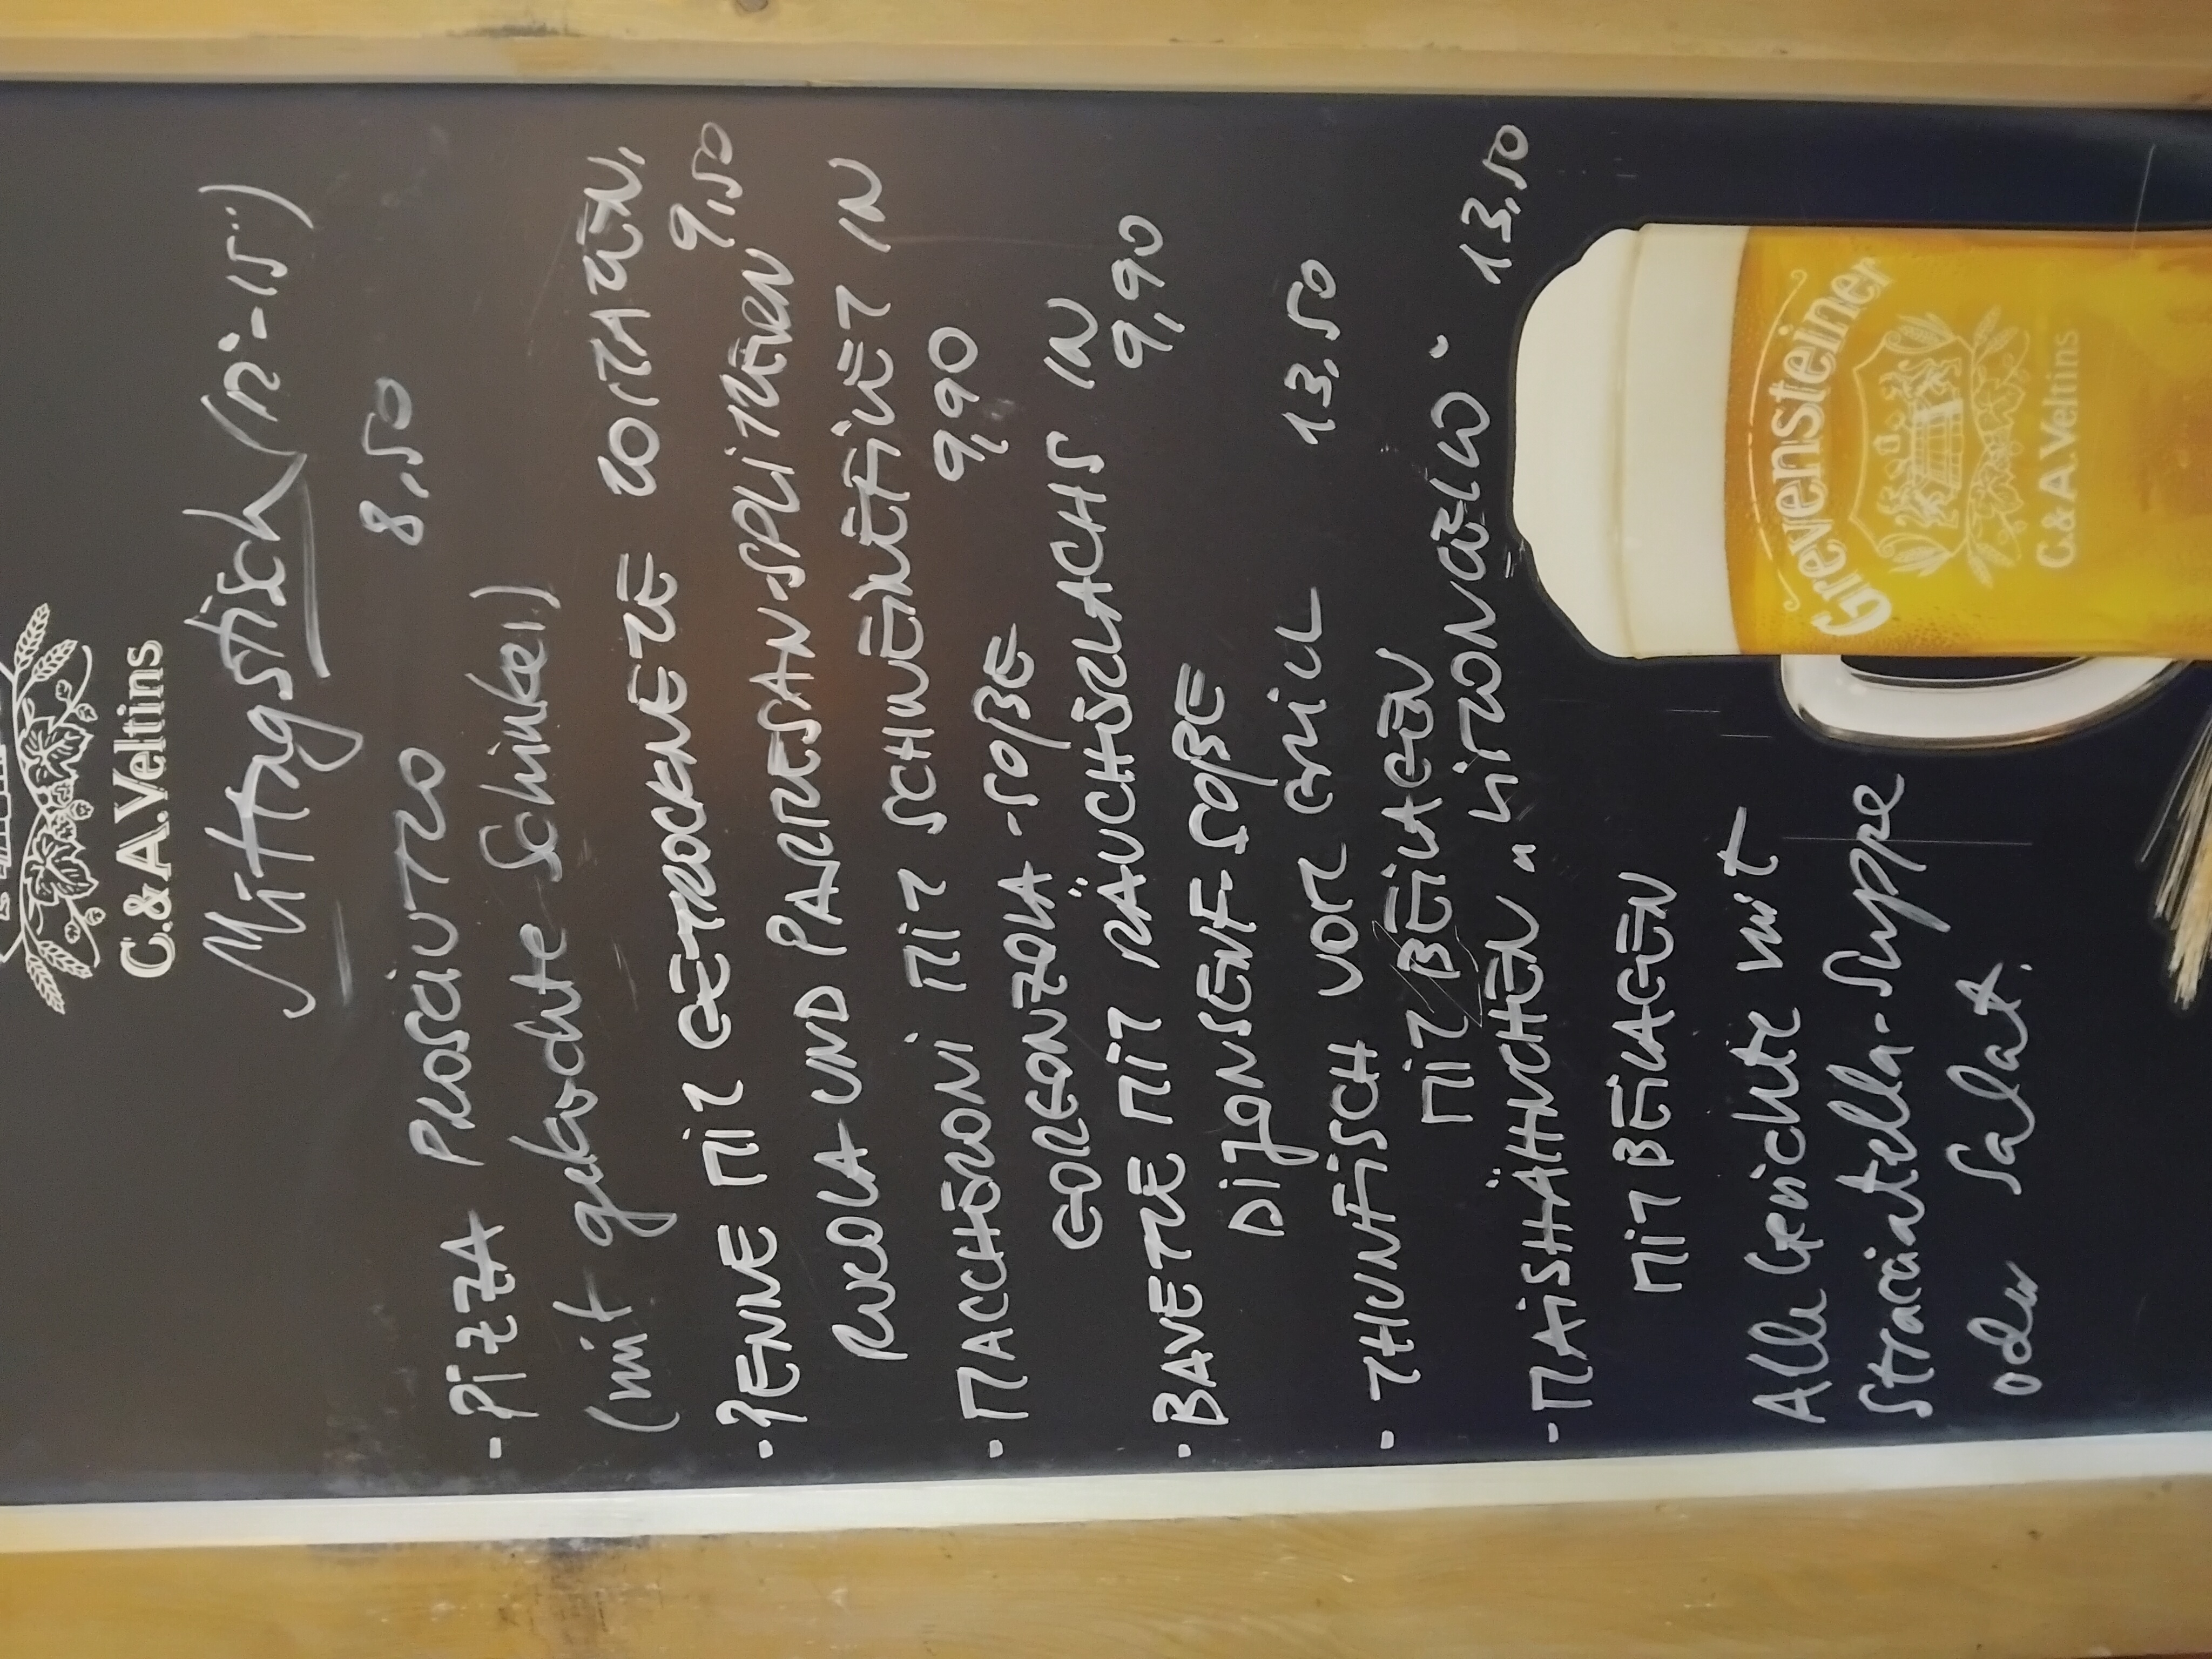 C.&A.Veltins
Mittagstisch (12°-15°°)
8,50
-PiZZA PROSCIUTTO
(mit gekochte Schinken)
-PENNE MIT GETROCKNETE TOMATEN,
RUCOLA UND PARMESANSPLITTERN 9,50
-MACCHERONI MIT SCHWEINEFILET IN
GORGONZOLA-SOßE 9,90
-BAVETTE MIT RÄUCHERLACHS IN
DIJONSENF-SOßE 9,90
-THUNFISCH VOM GRILL 13,50
MIT BEILAGEN
-MAISHÄHNCHEN "LIMONCELLO"
MIT BEILAGEN 13,50
Alle Gerichte mit
Stracciatella-Suppe
oder Salat.
Grevensteiner
C.&A.Veltins